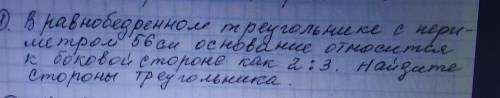 1). В равнобедренном треугольнике с пери-
метром 56 см основание относится
к боковой стороне как 2:3. Найдите
стороны треугольника.